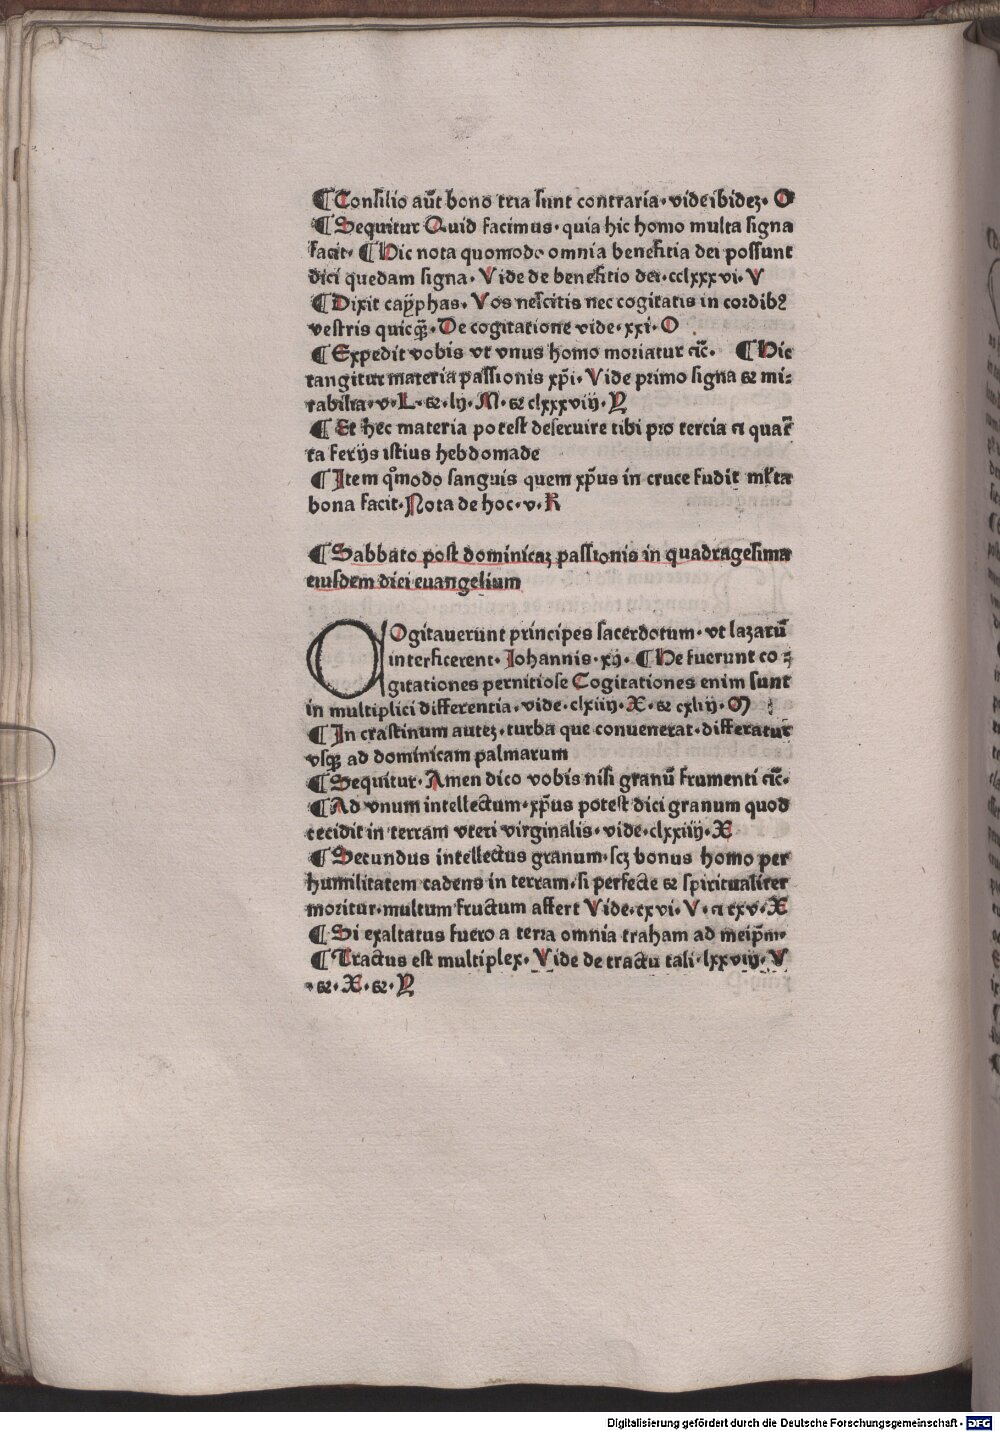 ¶ Consilio aūt bono tria sunt contraria· vide ibidez· O
¶ Sequitur Quid facimus· quia hic homo multa signa
facit· ¶ Hic nota quomodo omnia beneficia dei possunt
dici quedam signa· Vide de beneficio dei· cclxxxvi· V
¶ Dixit cayphas· Vos nescitis nec cogitatis in cordibꝰ
vestris quicqꝫ̄· De cogitatione vide· xxi· O
¶ Expedit vobis vt vnus homo moriatur ꝛc̄· ¶ Hic
tangitur materia passionis xp̄i· Vide primo signa ⁊ mi⸗
rabilia· v· L· ⁊· lij· M· ⁊ clxxxviij· Y
¶ Et hec materia potest deseruire tibi pro tercia ꝛ quar̄
ta ferijs istius hebdomade
¶ Item qͦmodo sanguis quem xp̄us in cruce fudit ml̄ta
bona facit· Nota de hoc· v· R
¶ Sabbato post dominicaꝫ passionis in quadragesima
eiusdem diei euangelium
COgitauerunt principes sacerdotum· vt lazarū
interficerent· Johannis· xij· ¶ He fuerunt co⸗
gitationes pernitiose Cogitationes enim sunt
in multiplici differentia· vide· clxiiij· X· ⁊ cxliij· M
¶ In crastinum autez· turba que conuenerat· differatur
vsqꝫ ad dominicam palmarum
¶ Sequitur· Amen dico vobis nisi granū frumenti ꝛc̄·
¶ Ad vnum intellectum· xp̄us potest dici granum quod
cecidit in terram vteri virginalis· vide· clxxiiij· X
¶ Secundus intellectus granum· scꝫ bonus homo per
humilitatem cadens in terram· si perfecte ⁊ spiritualiter
moritur· multum fructum affert Vide· cxvi· V· ꝛ cxv· X
¶ Si exaltatus fuero a terra omnia traham ad meip̄m·
¶ Tractus est multiplex· Vide de tractu tali· lxxviij· V
· ⁊· X· ⁊· Y
Digitalisierung gefördert durch die Deutsche Forschungsgemeinschaft - DFG